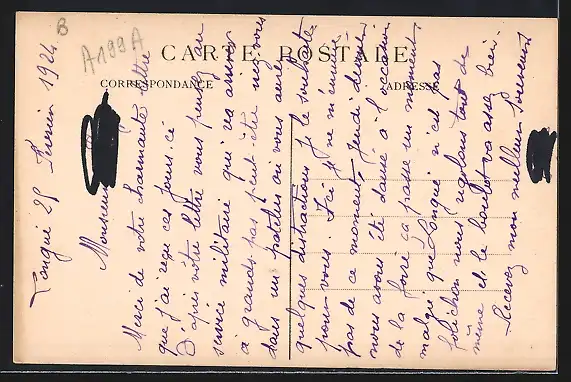 B
A199A
CARTE POSTALE
CORRESPONDANCE
ADRESSE
Longué 25 Février 1924
Monsieur
Merci de votre charmante lettre
que j'ai reçu ces jours-ci
D'après votre lettre vous pensez au
service militaire qui va arriver
à grands pas peut-être irez-vous
dans un patelin où vous aurez
quelques distractions je le souhaite
pour vous. Ici je ne m'ennuie
pas de ce moment, jeudi dernier
nous avons été danser à l'occasion
de la foire ça passe un moment,
malgré que Longué n'est pas
folichon nous rigolons tout de
même et le boulot va assez bien.
Recevez mon meilleur souvenir